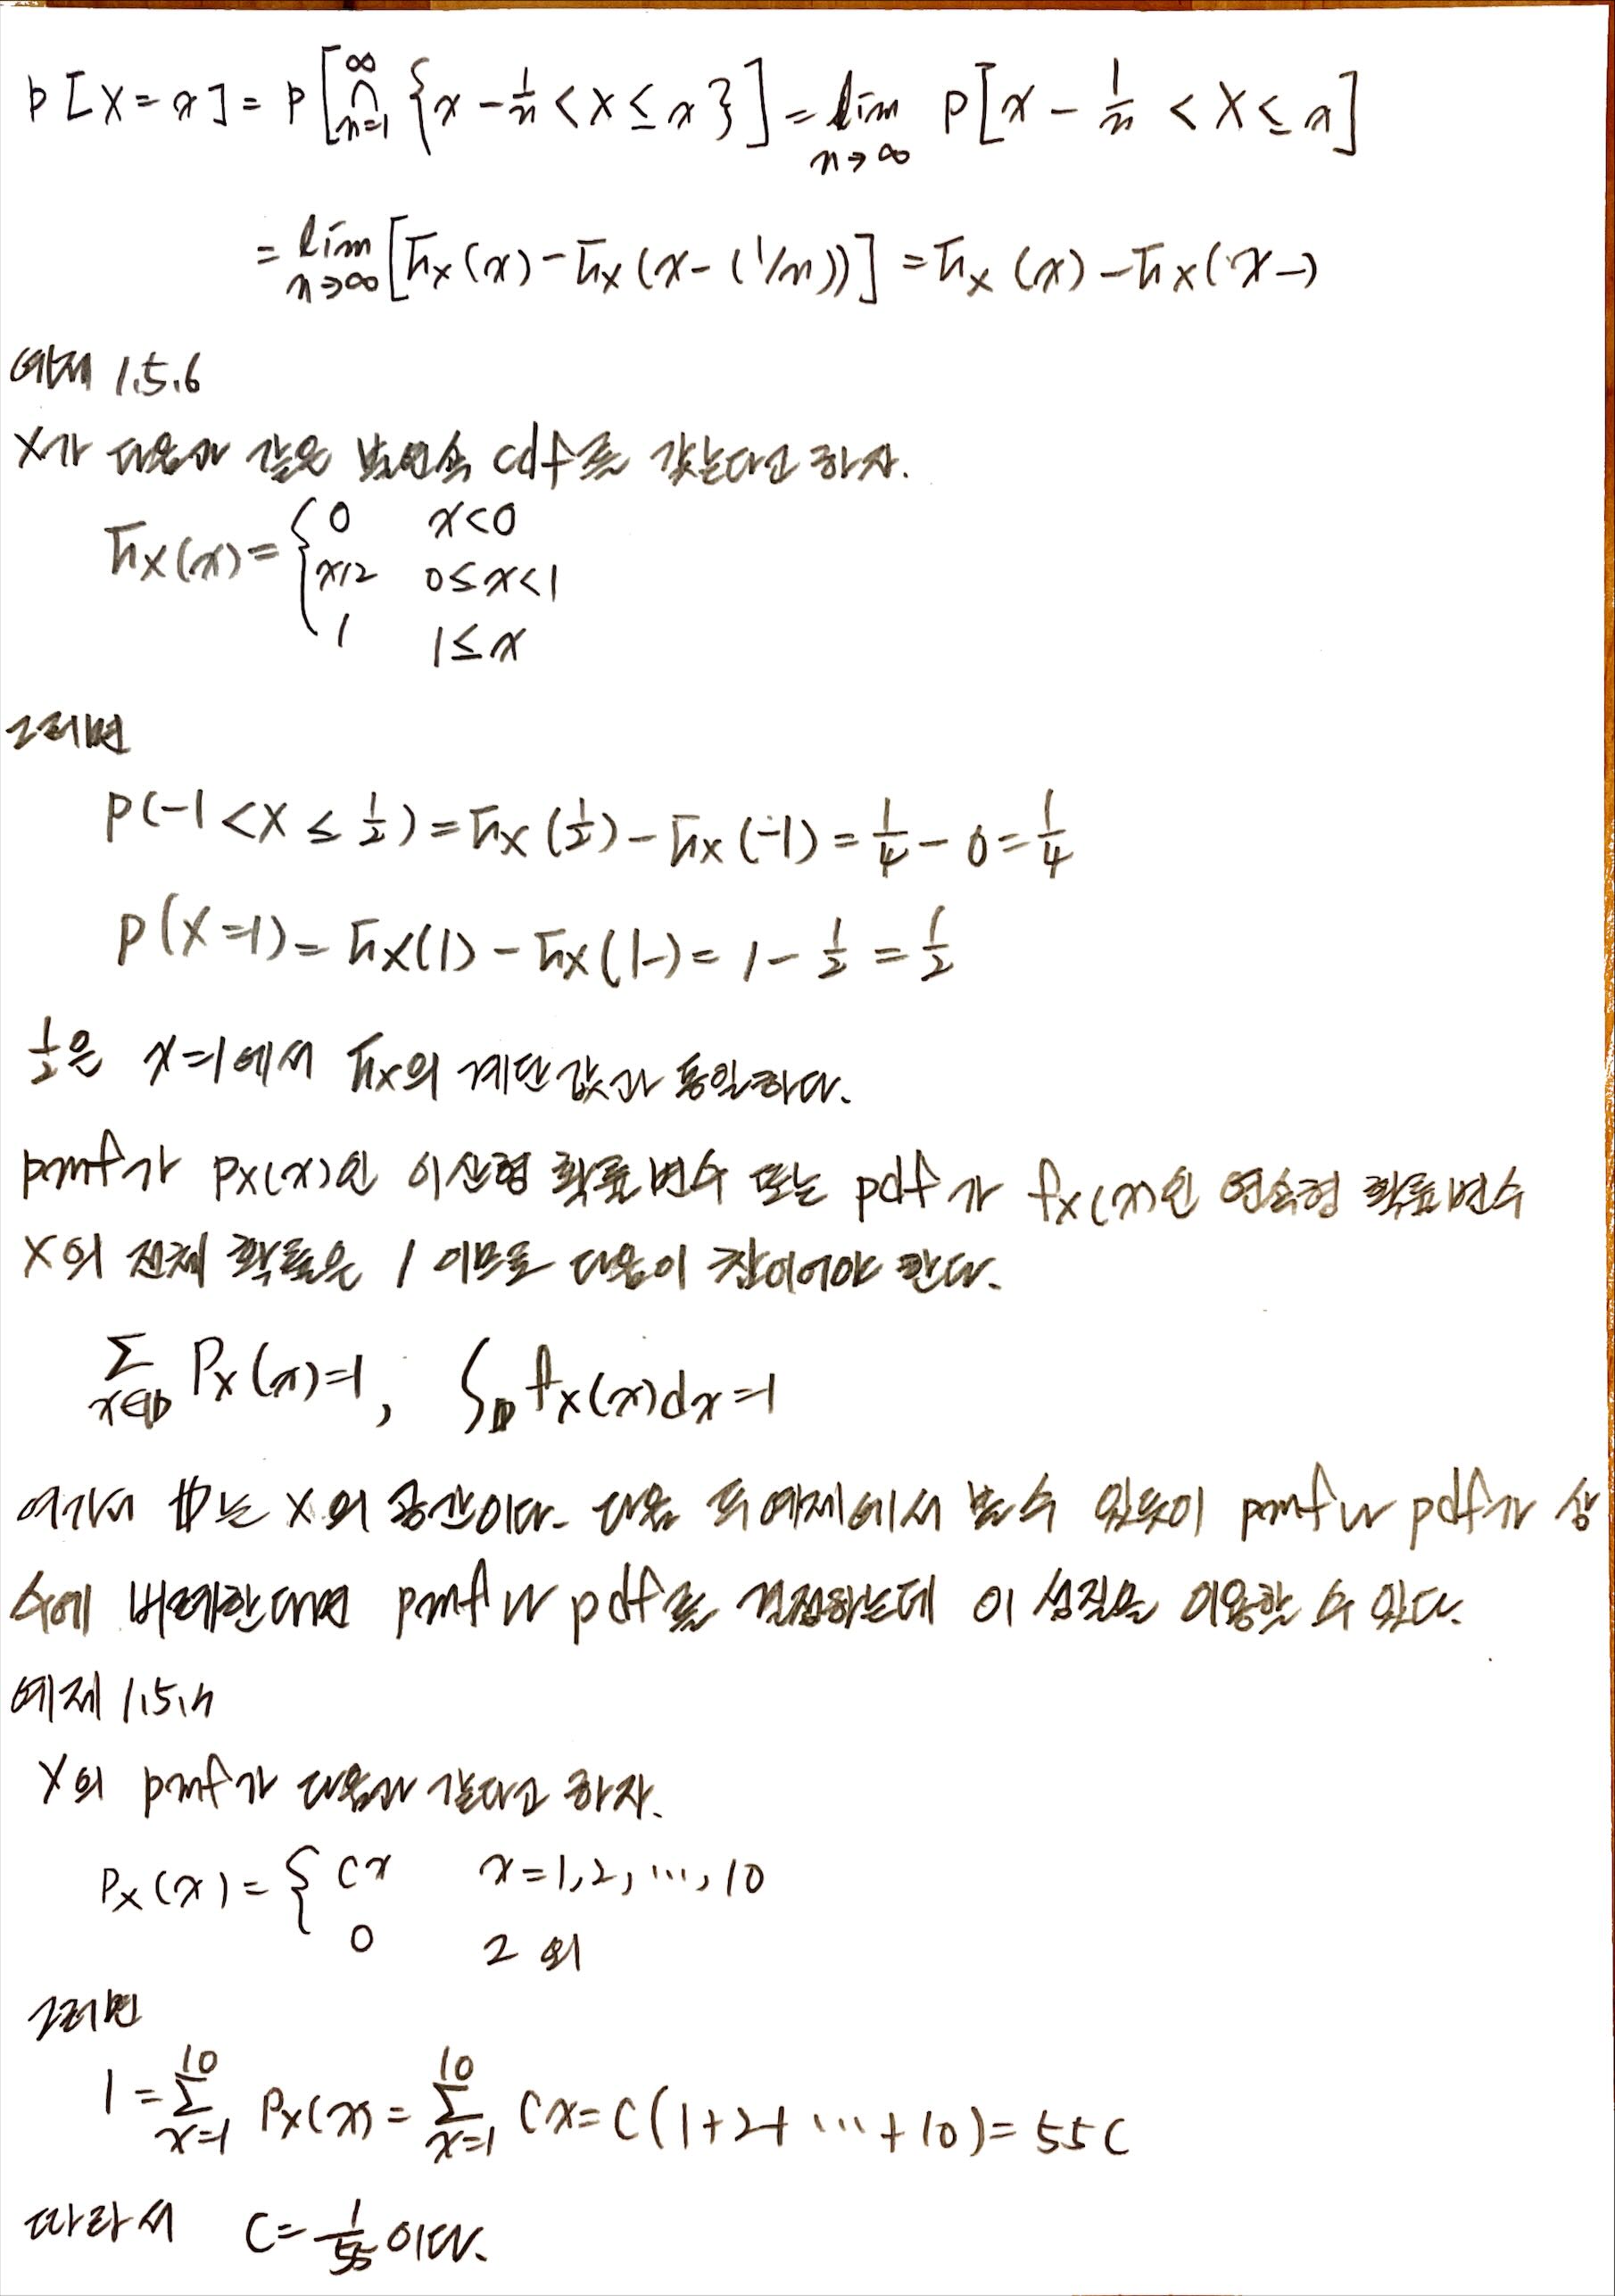 P[X=x] = P[∩_{n=1}^{∞} {x - 1/n < X ≤ x}] = lim_{n→∞} P[x - 1/n < X ≤ x]
= lim_{n→∞} [F_X(x) - F_X(x-(1/n))] = F_X(x) - F_X(x-)
예제 1.5.6
X가 다음과 같은 불연속 cdf를 갖는다고 하자.
F_X(x) = { 0 x<0
x/2 0≤x<1
1 1≤x
그러면
P(-1 < X ≤ 1/2) = F_X(1/2) - F_X(-1) = 1/4 - 0 = 1/4
P(X=1) = F_X(1) - F_X(1-) = 1 - 1/2 = 1/2
1/2은 x=1에서 F_X의 계단값과 동일하다.
pmf가 p_X(x)인 이산형 확률변수 또는 pdf가 f_X(x)인 연속형 확률변수
X의 전체 확률은 1 이므로 다음이 참이어야 한다.
Σ_{x∈D} P_X(x)=1, ∫_D f_X(x)dx=1
여기서 D는 X의 공간이다. 다음 두 예제에서 볼 수 있듯이 pmf나 pdf가 상
수에 비례한다면 pmf나 pdf를 결정하는데 이 성질을 이용할 수 있다.
예제 1.5.7
X의 pmf가 다음과 같다고 하자.
P_X(x) = { cx x=1,2,...,10
0 그 외
그러면
1 = Σ_{x=1}^{10} P_X(x) = Σ_{x=1}^{10} cx = c(1+2+...+10) = 55c
따라서 c = 1/55 이다.